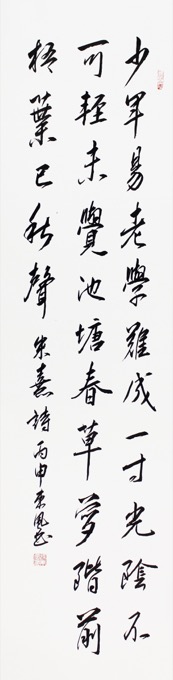 少年易老學難成一寸光陰不
可輕未覺池塘春草夢階前
梧葉已秋聲 朱熹詩 丙申